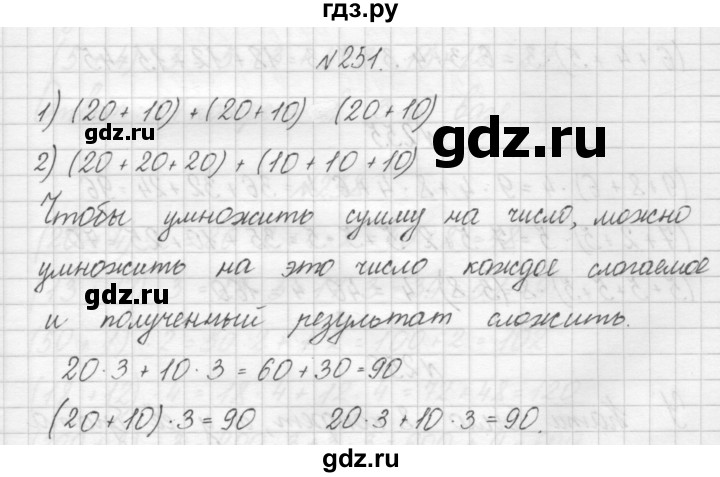 гдз.ру
№251.
1) (20+10)+(20+10) (20+10)
gdz.ru
gdz.ru
2) (20+20+20)+(10+10+10)
Чтобы умножить сумму на число, можно
умножить на это число каждое слогаемое
gdz.ru
и полученный результат сложить.
20·3+10·3=60+30=90
(20+10)·3=90 20·3+10·3=90.
gdz.ru